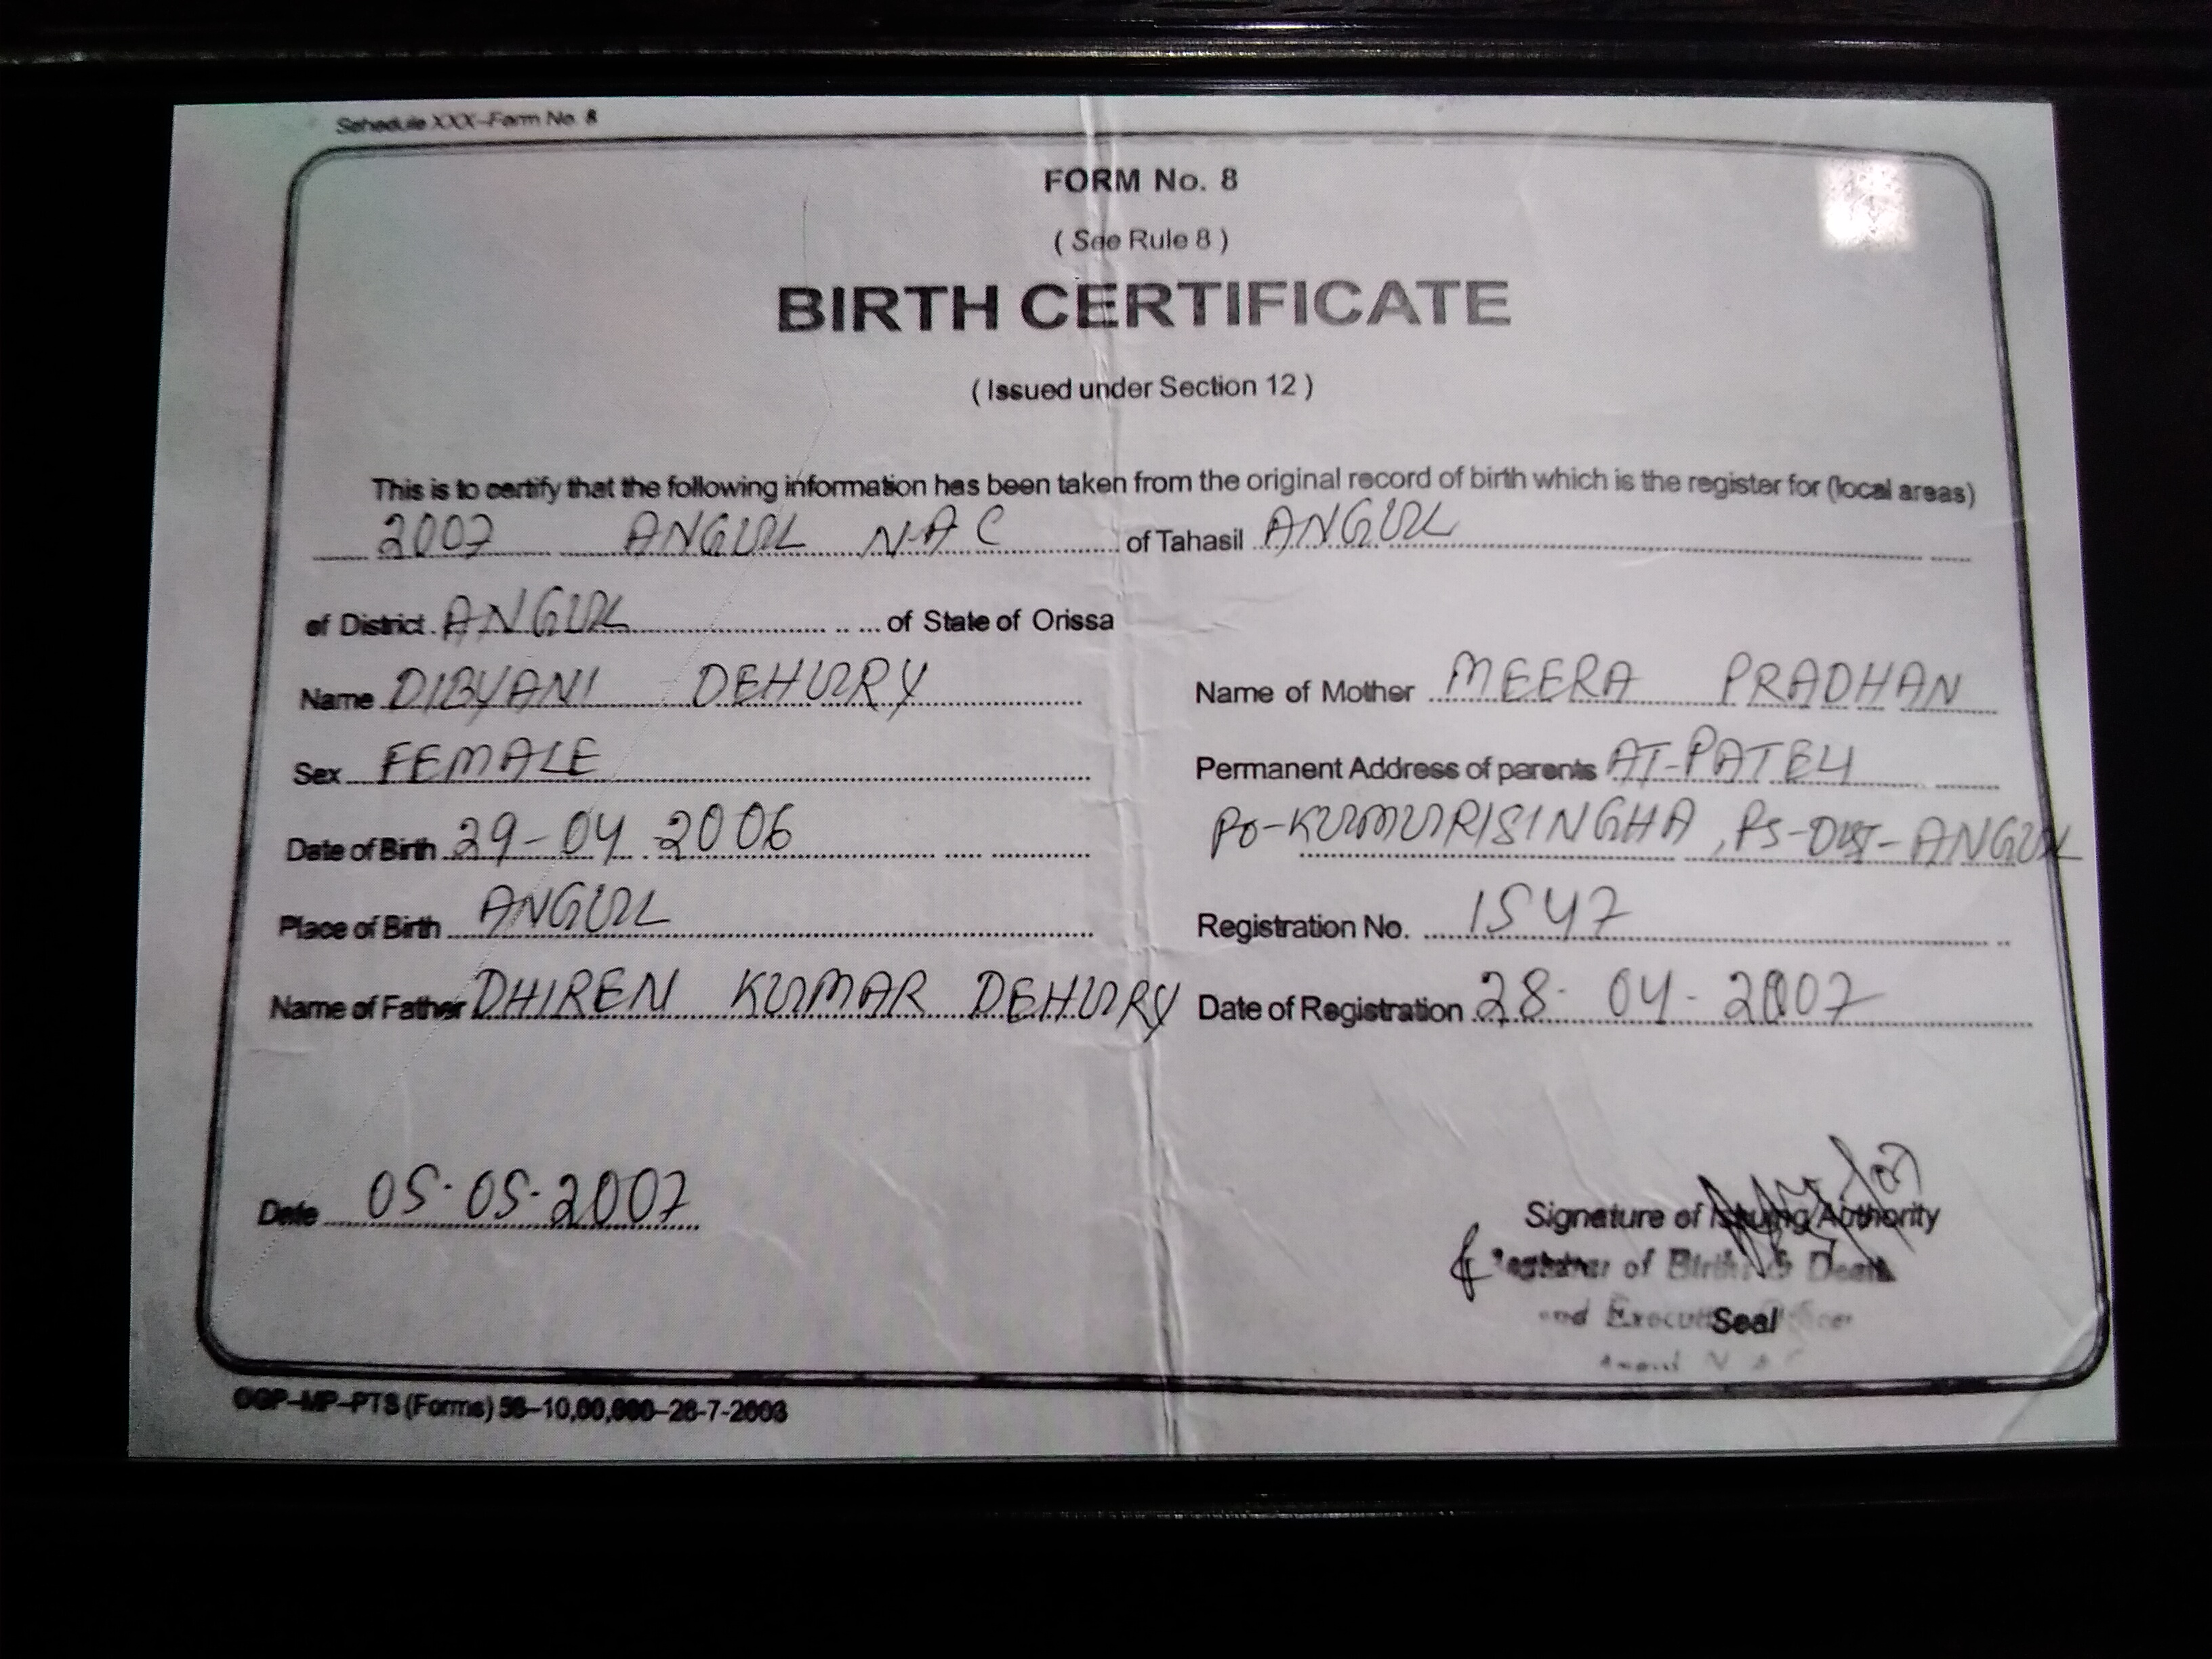 Schedule XXX-Form No. 8
FORM No. 8
( See Rule 8 )
BIRTH CERTIFICATE
( Issued under Section 12 )
This is to certify that the following information has been taken from the original record of birth which is the register for (local areas)
2007 ANGUL N.A.C of Tahasil ANGUL
of District ANGUL of State of Orissa
Name DIBYANI DEHURY
Sex FEMALE
Date of Birth 29-04 2006
Place of Birth ANGUL
Name of Father DHIREN KUMAR DEHURY
Name of Mother MEERA PRADHAN
Permanent Address of parents AT-PATELI
PO-KUMURISINGHA, PS-DIST-ANGUL
Registration No. 1547
Date of Registration 28-04-2007
Date 05-05-2007
Signature of Issuing Authority
Registrar of Births & Death
and Executive Officer
Seal
Angul N A C
OGP-MP-PTS (Forms) 56-10,00,000-26-7-2003